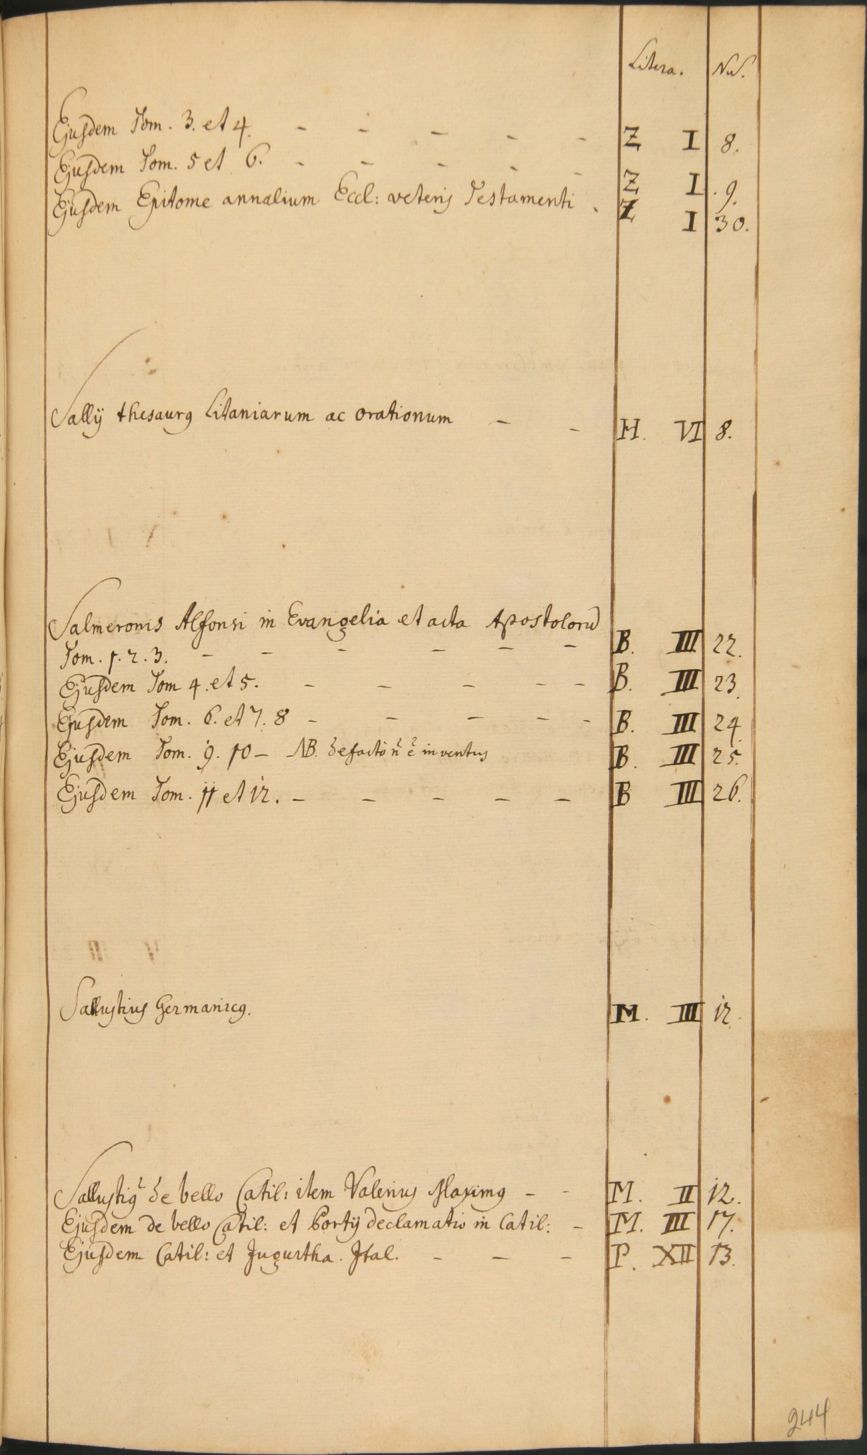 Litera. Nu̅.
Ejusdem Tom. 3. et 4. - - - - - Z I 8.
Ejusdem Tom. 5 et 6. - - - - - Z I 9.
Ejusdem Epitome annalium Eccl: veteris Testamenti . Z I 30.
Sallij thesaurꝯ Litaniarum ac orationum - - H. VI 8.
Salmeronis Alfonsi in Evangelia et acta Apostoloru̅
Tom. 1. 2. 3. - - - - - - B. III 22.
Ejusdem Tom 4. et 5. - - - - - B. III 23.
Ejusdem Tom. 6. et 7. 8 - - - - - B. III 24.
Ejusdem Tom. 9. 10 - NB. de facto n̅ e̅ inventus B. III 25.
Ejusdem Tom. 11 et 12. - - - - - B III 26.
Sallustius Germanicꝯ. M. III 12.
Sallustiꝯ de bello Catil: item Valerius Maximꝯ - - M. II 12.
Ejusdem de bello Catil: et Portij declamatio in Catil: - M. III 17.
Ejusdem Catil: et Jugurtha. Ital. - - - P. XII 13.
244